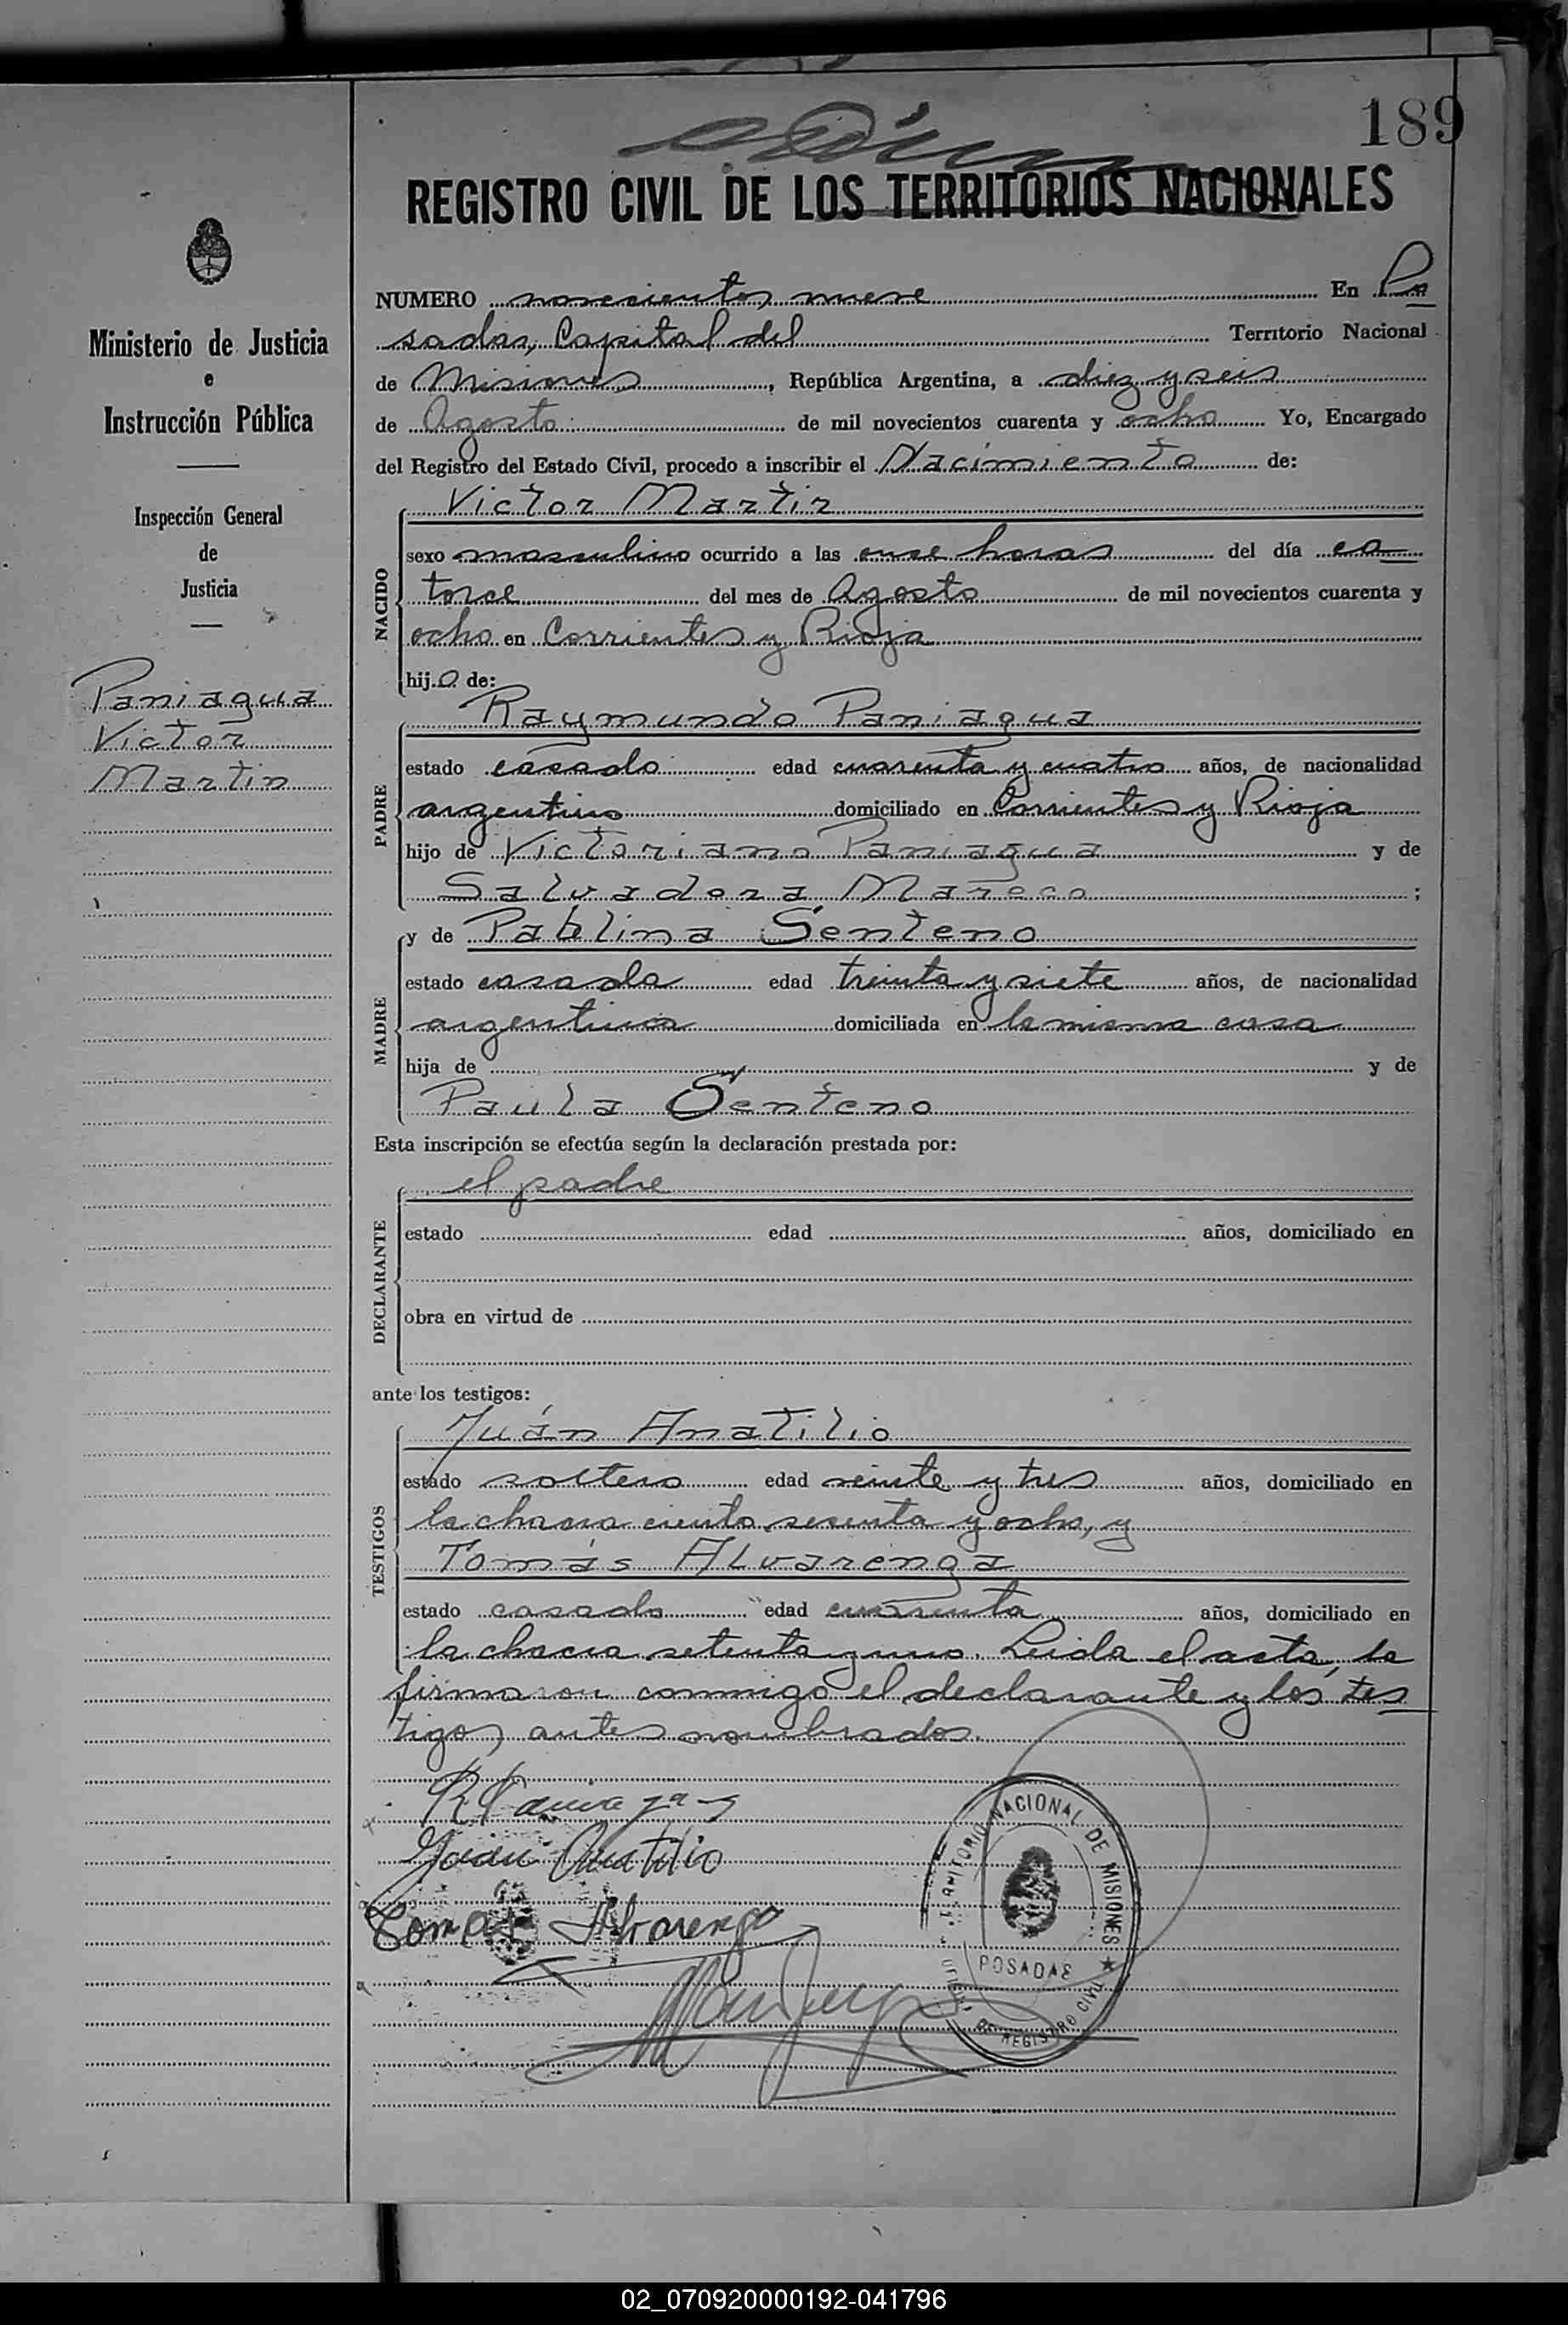 189
REGISTRO CIVIL DE LOS TERRITORIOS NACIONALES
Ministerio de Justicia
e
Instrucción Pública
Inspección General
de
Justicia
Paniagua
Victor
Martin
NUMERO novecientos nueve En Po
sadas, Capital del Territorio Nacional
de Misiones, República Argentina, a diez y seis
de Agosto de mil novecientos cuarenta y ocho Yo, Encargado
del Registro del Estado Civil, procedo a inscribir el Nacimiento de:
NACIDO
Victor Martin
sexo masculino ocurrido a las once horas del día ca
torce del mes de Agosto de mil novecientos cuarenta y
ocho en Corrientes y Rioja
hijo de:
PADRE
Raymundo Paniagua
estado casado edad cuarenta y cuatro años, de nacionalidad
argentino domiciliado en Corrientes y Rioja
hijo de Victoriano Paniagua y de
Salvadora Mareco;
MADRE
y de Pablina Senteno
estado casada edad treinta y siete años, de nacionalidad
argentina domiciliada en la misma casa
hija de y de
Paula Senteno
Esta inscripción se efectúa según la declaración prestada por:
DECLARANTE
el padre
estado edad años, domiciliado en
obra en virtud de
ante los testigos:
TESTIGOS
Juán Anatilio
estado soltero edad veinte y tres años, domiciliado en
la chacra ciento sesenta y ocho, y
Tomás Alvarenga
estado casado edad cuarenta años, domiciliado en
la chacra setenta y uno. Leida el acta, la
firmaron conmigo el declarante y los tes
tigos antes nombrados.
R Paniagua
Juan Anatilio
Tomas Alvarenga
TERRITORIO NACIONAL DE MISIONES
POSADAS
OFICINA DE REGISTRO CIVIL
02_070920000192-041796